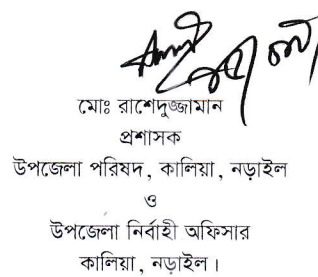 মোঃ রাশেদুজ্জামান
প্রশাসক
উপজেলা পরিষদ, কালিয়া, নড়াইল
ও
উপজেলা নির্বাহী অফিসার
কালিয়া, নড়াইল।